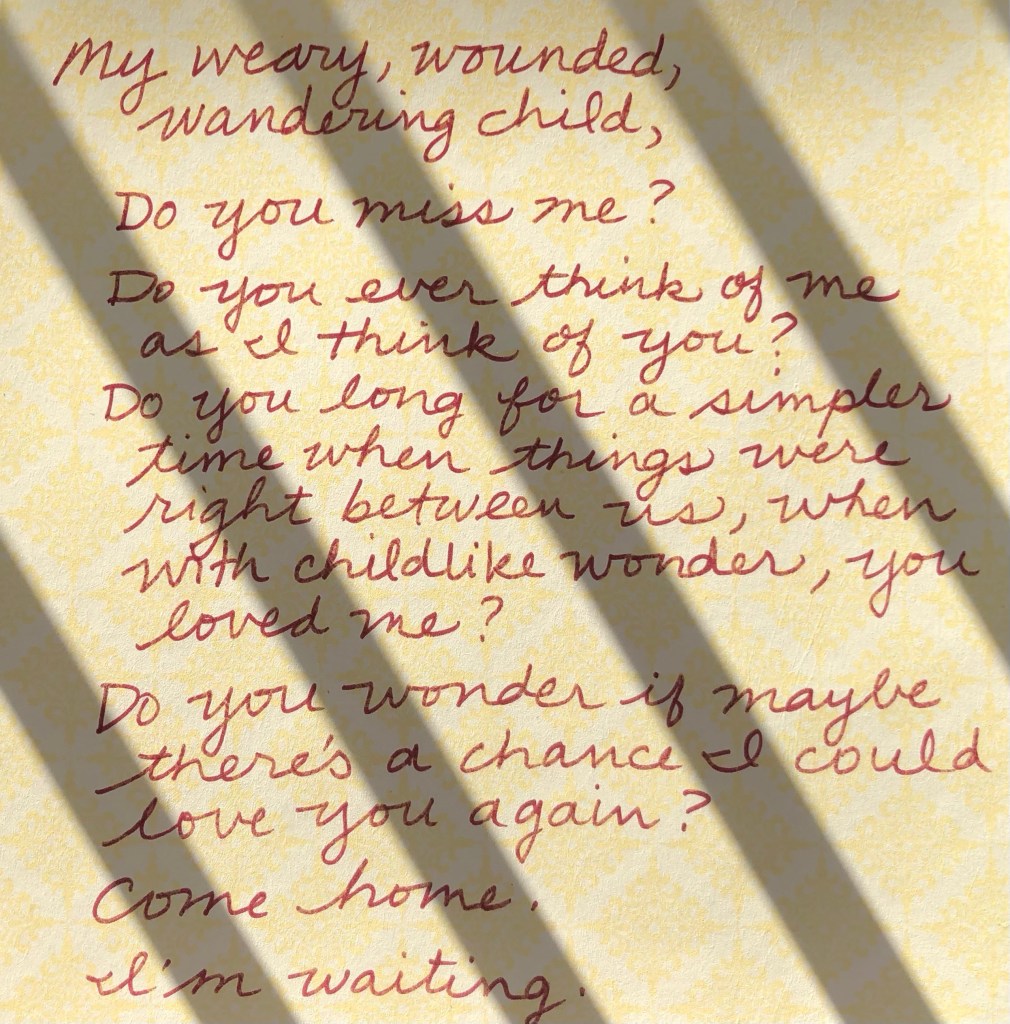 My weary, wounded,
wandering child,
Do you miss me?
Do you ever think of me
as I think of you?
Do you long for a simpler
time when things were
right between us, when
with childlike wonder, you
loved me?
Do you wonder if maybe
there's a chance I could
love you again?
Come home.
I'm waiting.